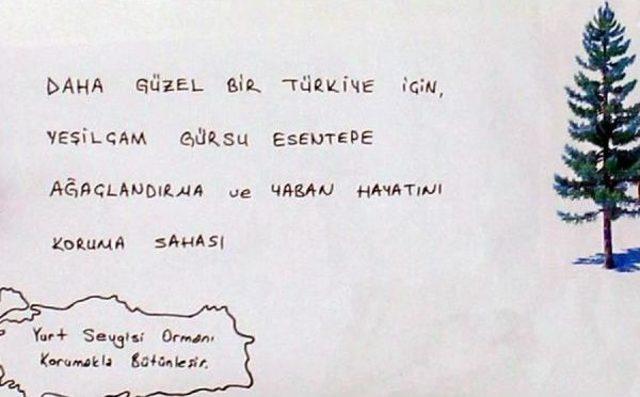 DAHA GÜZEL BİR TÜRKİYE İÇİN,
YEŞİLÇAM GÜRSU ESENTEPE
AĞAÇLANDIRMA ve YABAN HAYATINI
KORUMA SAHASI
Yurt Sevgisi Ormanı
Korumakla Bütünleşir.